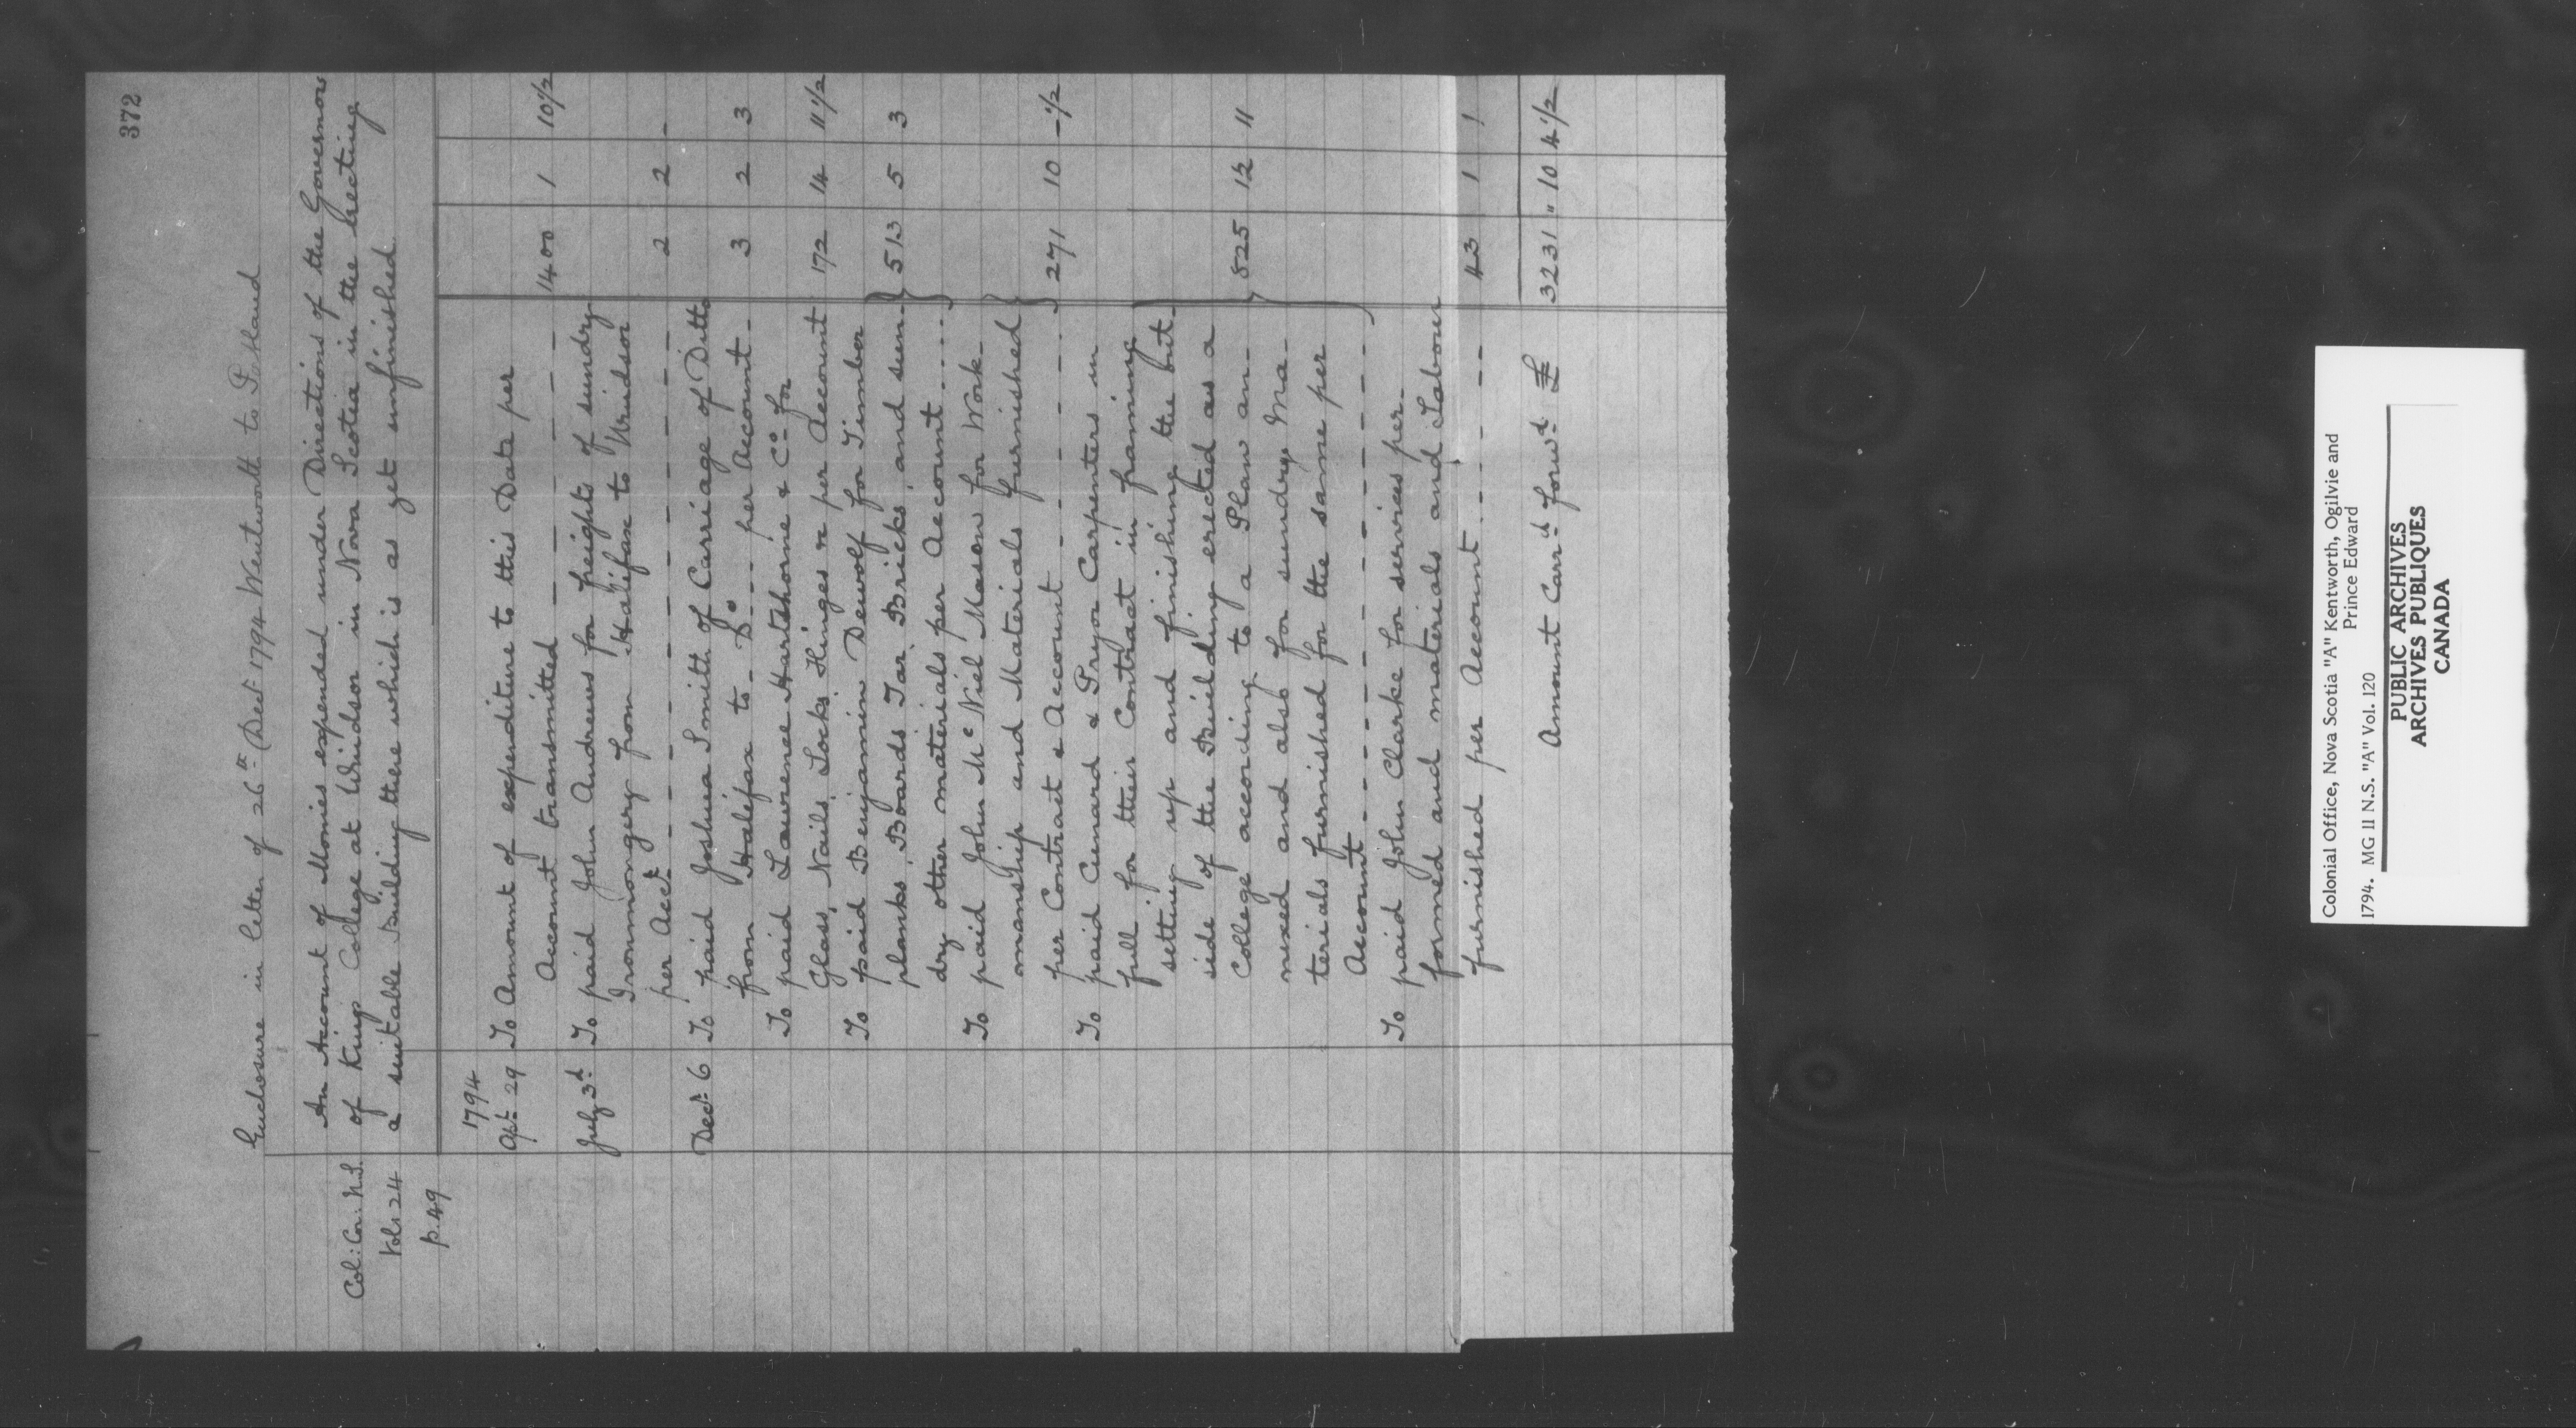 372
Enclosure in letter of 26th Decr 1794 Wentworth to Portland
Col: Cor: N.S.
Vol: 24
p. 49
An Account of Monies expended under Directions of the Governors
of Kings College at Windsor in Nova Scotia in the erecting
a suitable Building there which is as yet unfinished.
1794
Apl: 29 To Amount of expenditure to this Date per
Account transmitted — — — — — 1400 1 10½
July 3d To paid John Andrews for freight of sundry
Ironmongery from Halifax to Windsor
per Acct - - - - - - - - 2 2 -
Decr 6 To paid Joshua Smith of Carriage of Ditto
from Halifax to Do - - - per Account - 3 2 3
To paid Lawrence Hartshorne & Co for
Glass, Nails, Locks Hinges &c per Account 172 14 11½
To paid Benjamin Dewolf for Timber
planks, Boards Tar, Bricks, and sun-
dry other materials per Account .... 513 5 3
To paid John McNiel Mason for Work-
manship and Materials furnished
per Contract & Account - - - - - - 271 10 -½
To paid Cunard & Pryor Carpenters in
full for their Contract in framing
setting up and finishing the but-
side of the Building erected as a
College according to a Plan an-
nexed and also for sundry Ma-
terials furnished for the same per
Account - - - - - - - - 825 12 11
To paid John Clarke for services per-
formed and materials and Labour
furnished per Account - - - - - 43 1 1
Amount Carrd forwd £ 3231 " 10 4½
Colonial Office, Nova Scotia "A" Kentworth, Ogilvie and
Prince Edward
1794. MG 11 N.S. "A" Vol. 120
PUBLIC ARCHIVES
ARCHIVES PUBLIQUES
CANADA